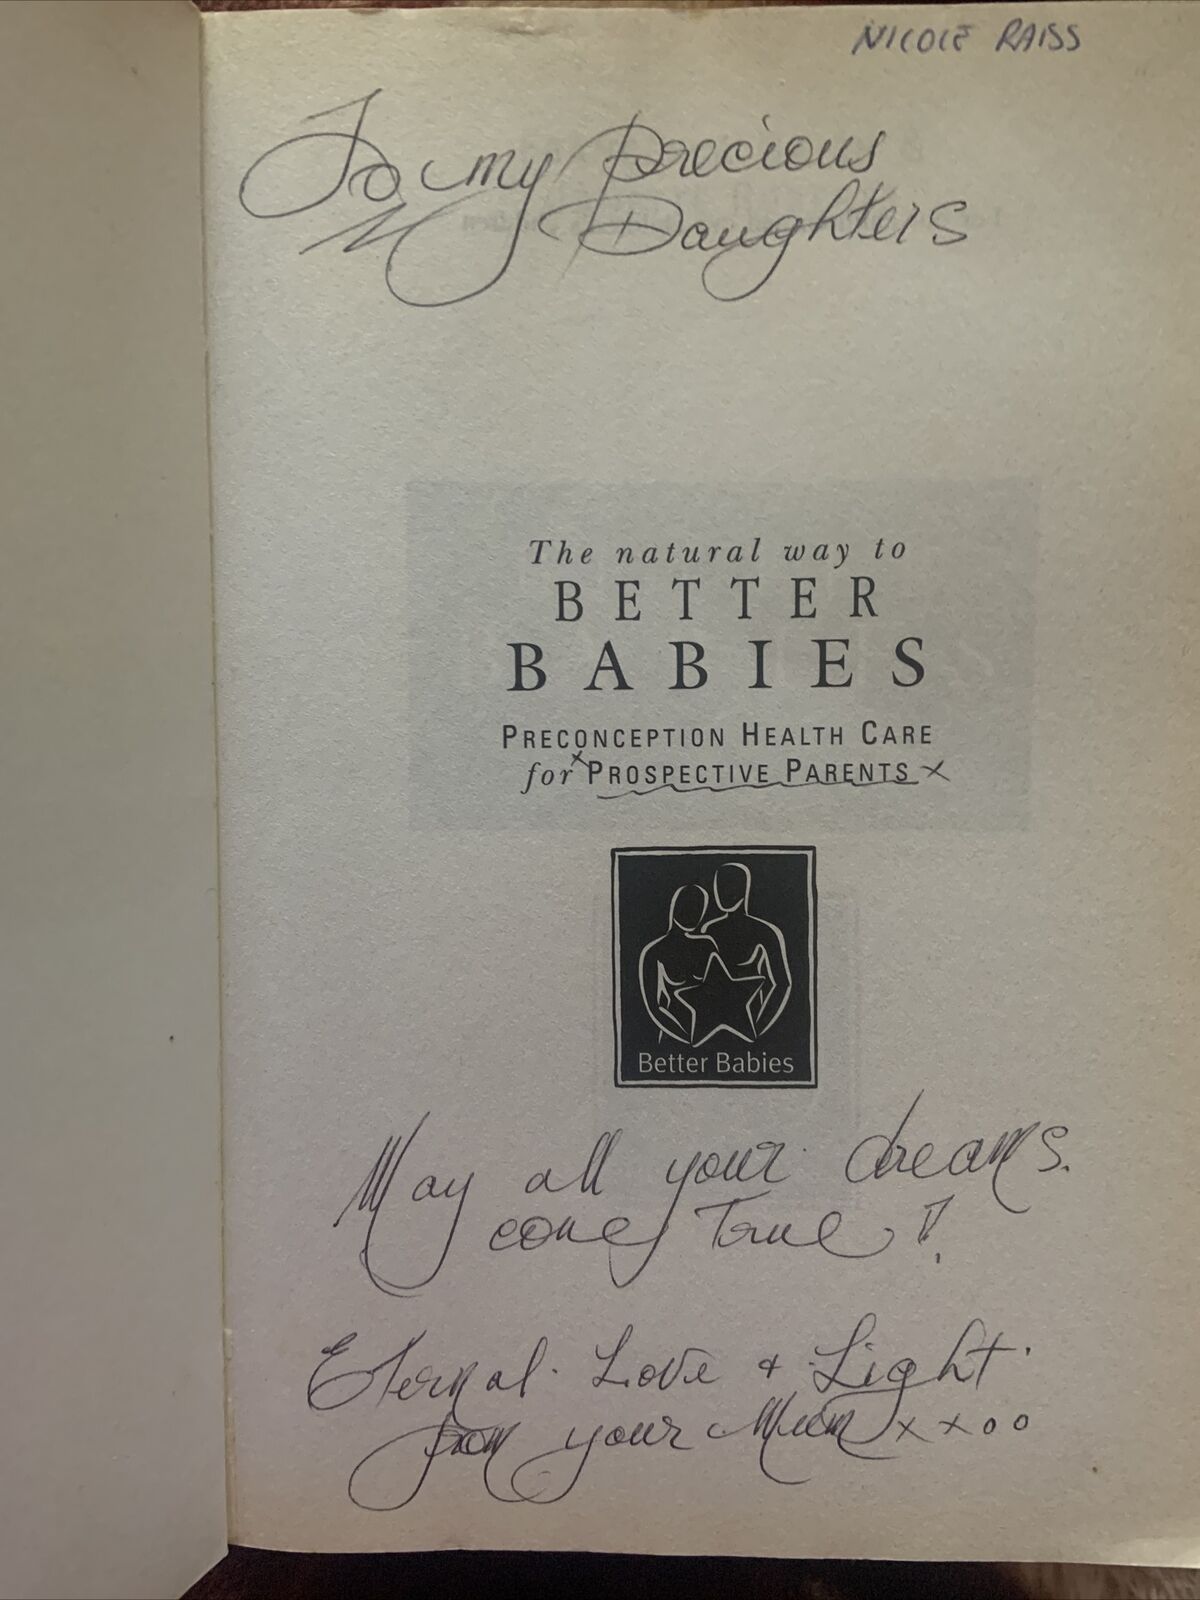 NICOLE RAISS
To my precious
Daughters
The natural way to
BETTER
BABIES
PRECONCEPTION HEALTH CARE
for x PROSPECTIVE PARENTS x
Better Babies
May all your dreams.
come True!
Eternal Love & Light
from your Mum xxoo